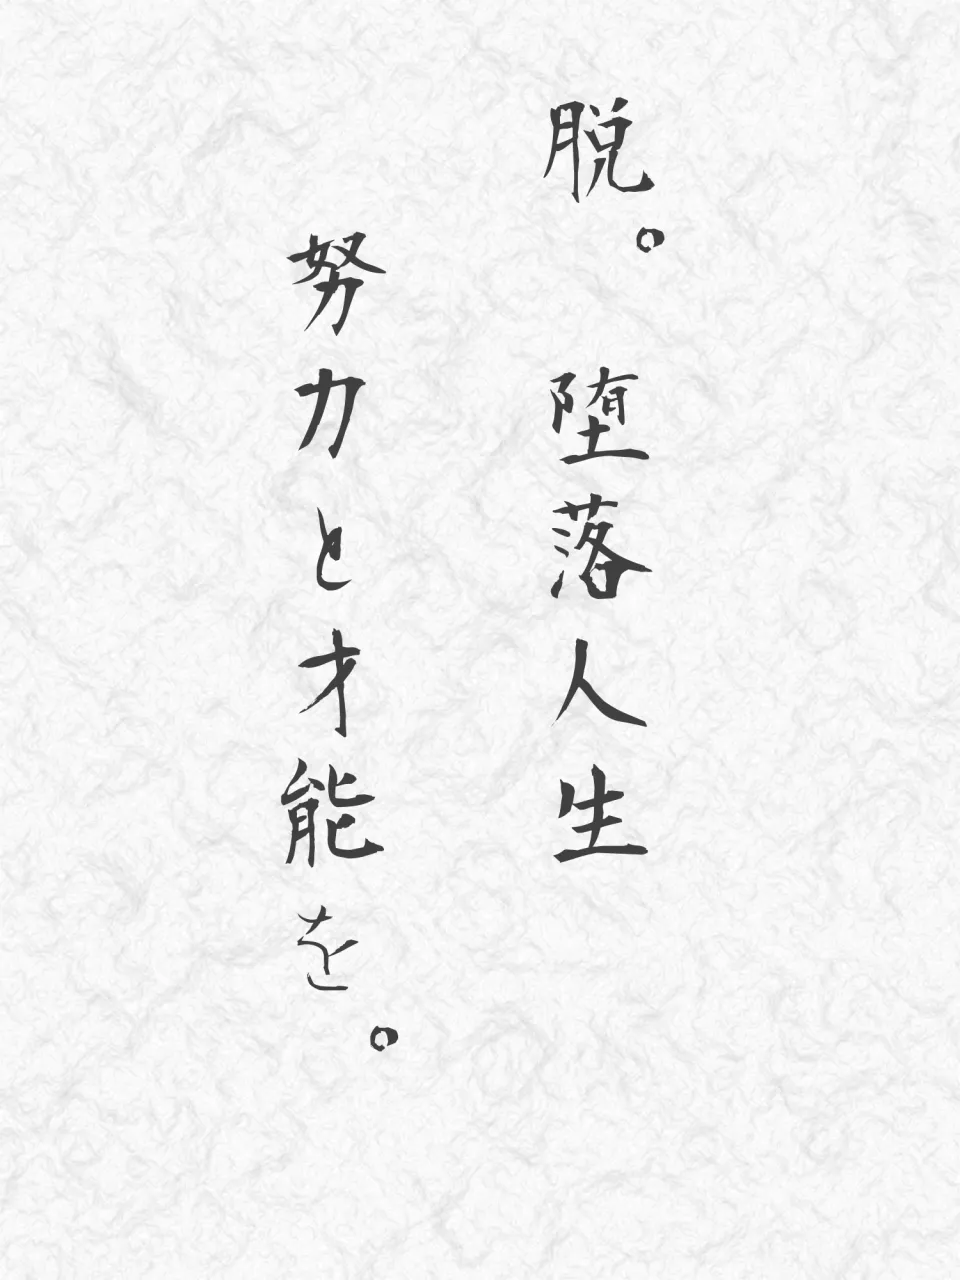 脱。 堕落人生
努力と才能を。